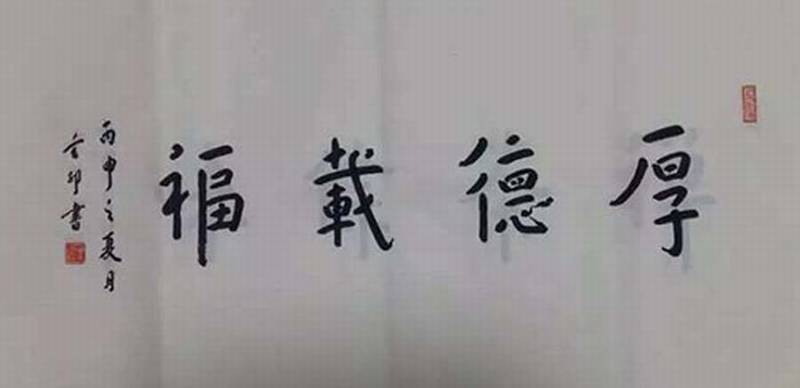 厚德載福
丙申之夏月
印書